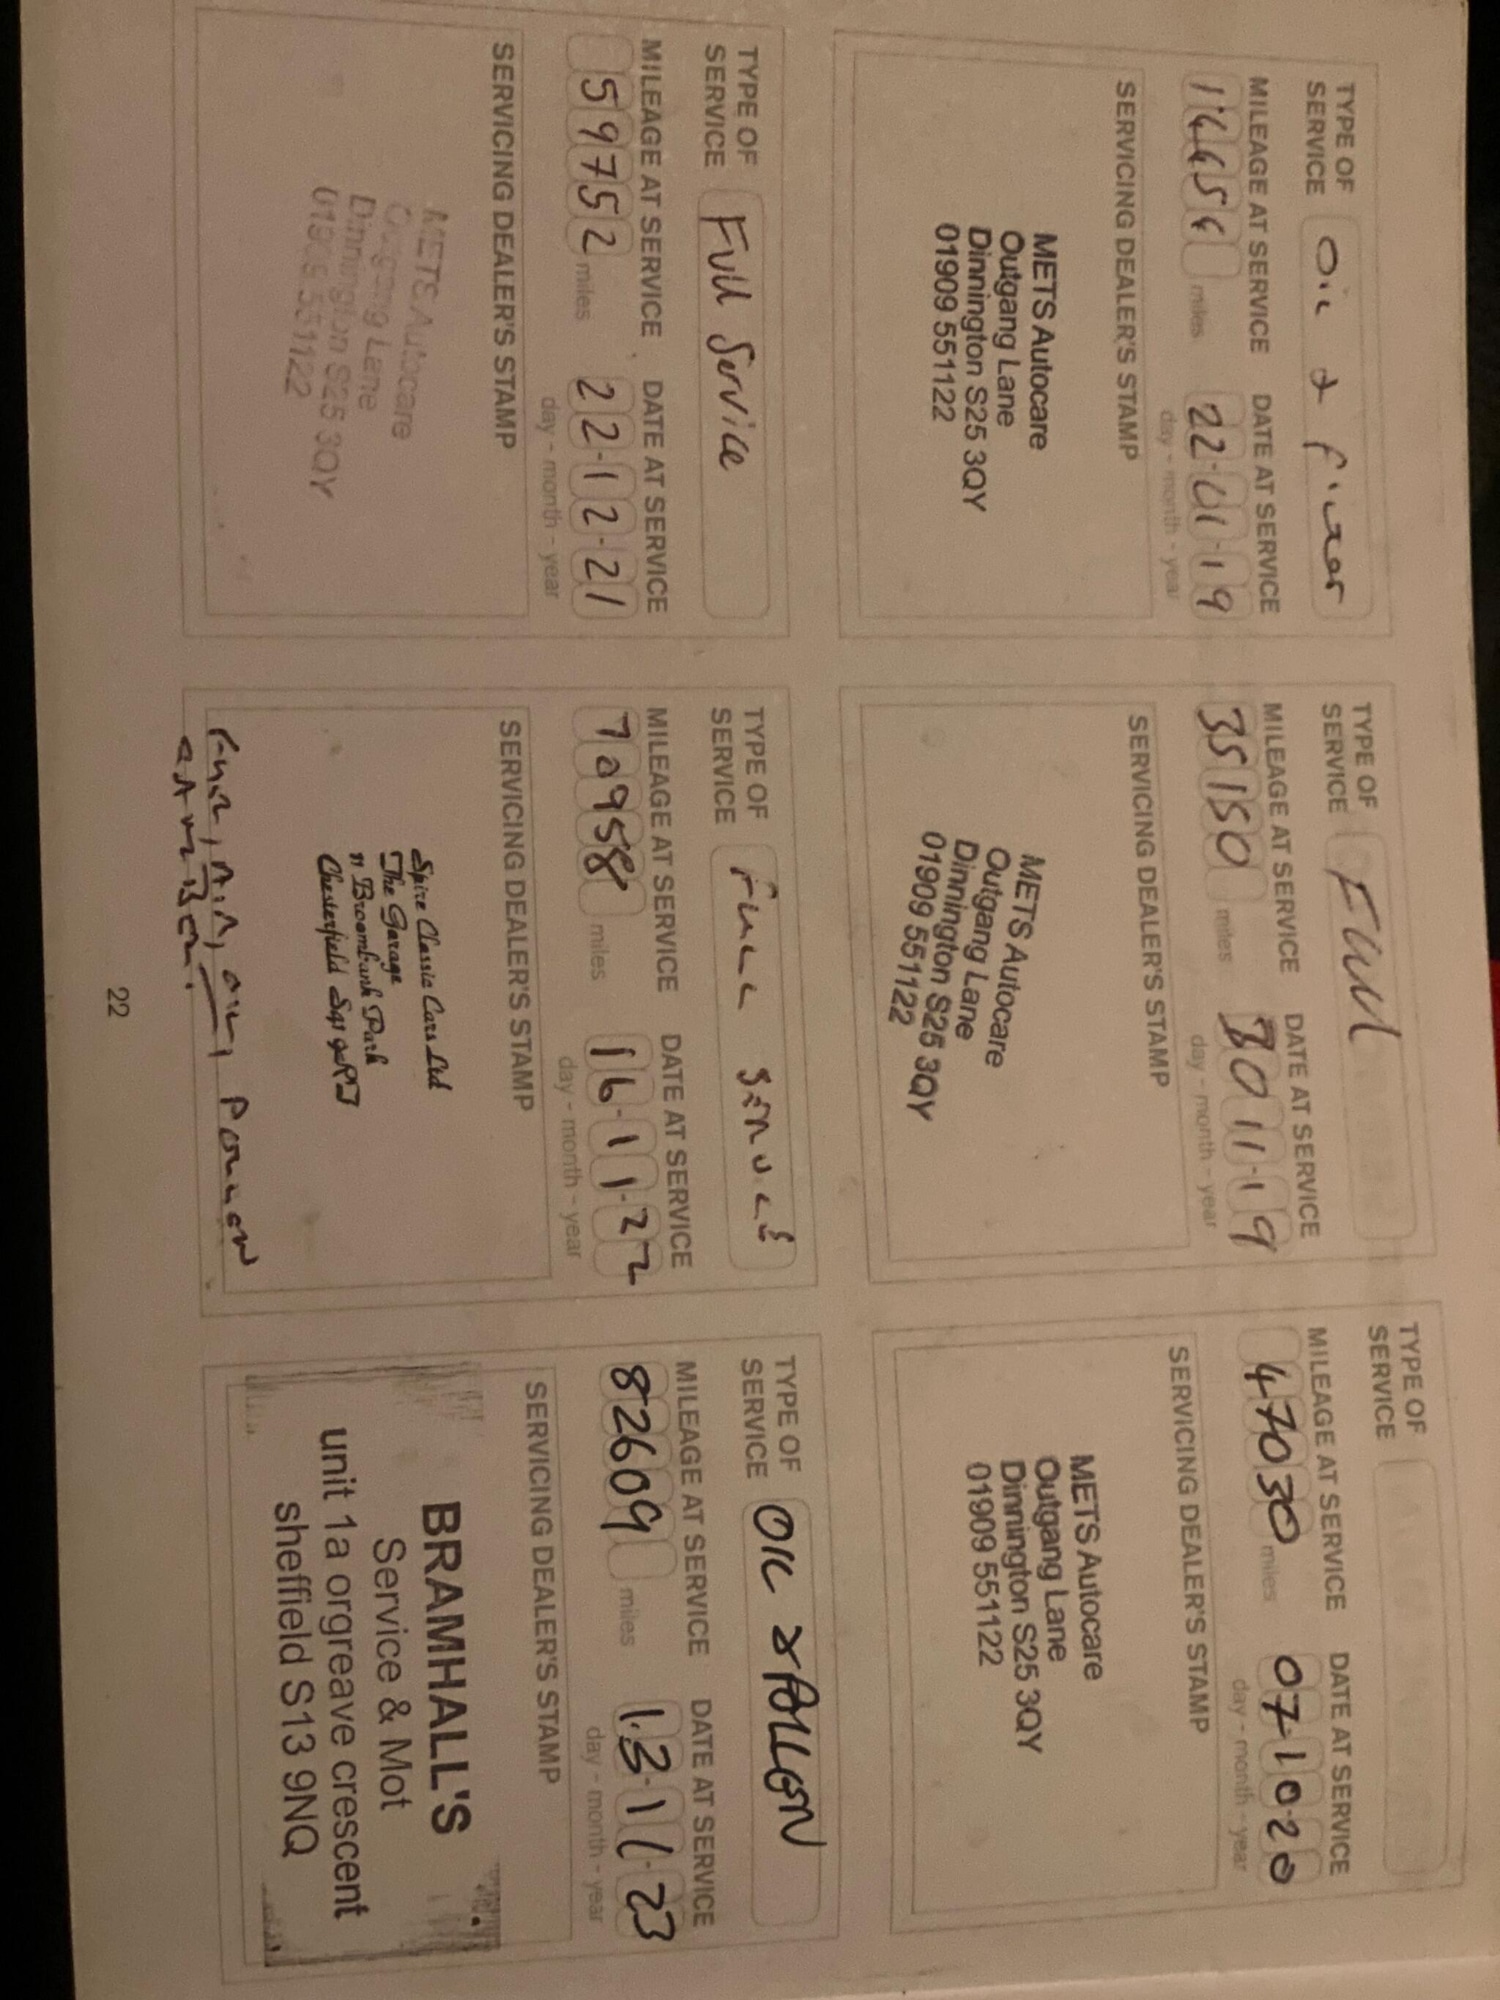 TYPE OF
SERVICE Oil & Filter
MILEAGE AT SERVICE DATE AT SERVICE
miles 22-01-19
day - month - year
SERVICING DEALER'S STAMP
METS Autocare
Outgang Lane
Dinnington S25 3QY
01909 551122
TYPE OF
SERVICE Full
MILEAGE AT SERVICE DATE AT SERVICE
35150 miles 30 11-19
day - month - year
SERVICING DEALER'S STAMP
METS Autocare
Outgang Lane
Dinnington S25 3QY
01909 551122
TYPE OF
SERVICE
MILEAGE AT SERVICE DATE AT SERVICE
47030 miles 07-10-20
day - month - year
SERVICING DEALER'S STAMP
METS Autocare
Outgang Lane
Dinnington S25 3QY
01909 551122
TYPE OF
SERVICE Full Service
MILEAGE AT SERVICE DATE AT SERVICE
59752 miles 22-12-21
day - month - year
SERVICING DEALER'S STAMP
METS Autocare
Outgang Lane
Dinnington S25 3QY
01909 551122
TYPE OF
SERVICE Full Service
MILEAGE AT SERVICE DATE AT SERVICE
70958 miles 16-11-22
day - month - year
SERVICING DEALER'S STAMP
Spire Classic Cars Ltd
The Garage
11 Broombank Park
Chesterfield S41 9RT
Air, Oil, Pollen
TYPE OF
SERVICE OIL & POLLEN
MILEAGE AT SERVICE DATE AT SERVICE
82609 miles 13-11-23
day - month - year
SERVICING DEALER'S STAMP
BRAMHALL'S
Service & Mot
unit 1a orgreave crescent
sheffield S13 9NQ
22